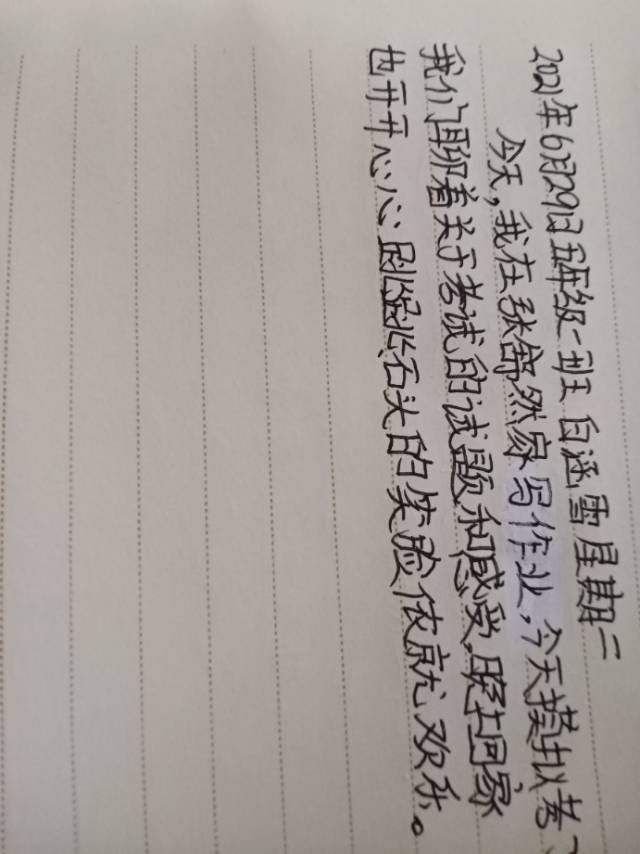 2021年6月29日五年级一班 白涵雪 星期二
今天,我在张舒然家写作业,今天模拟考
我们聊着关于考试的试题和感受,晚上回家
也开开心心 石头的笑脸依就欢乐。